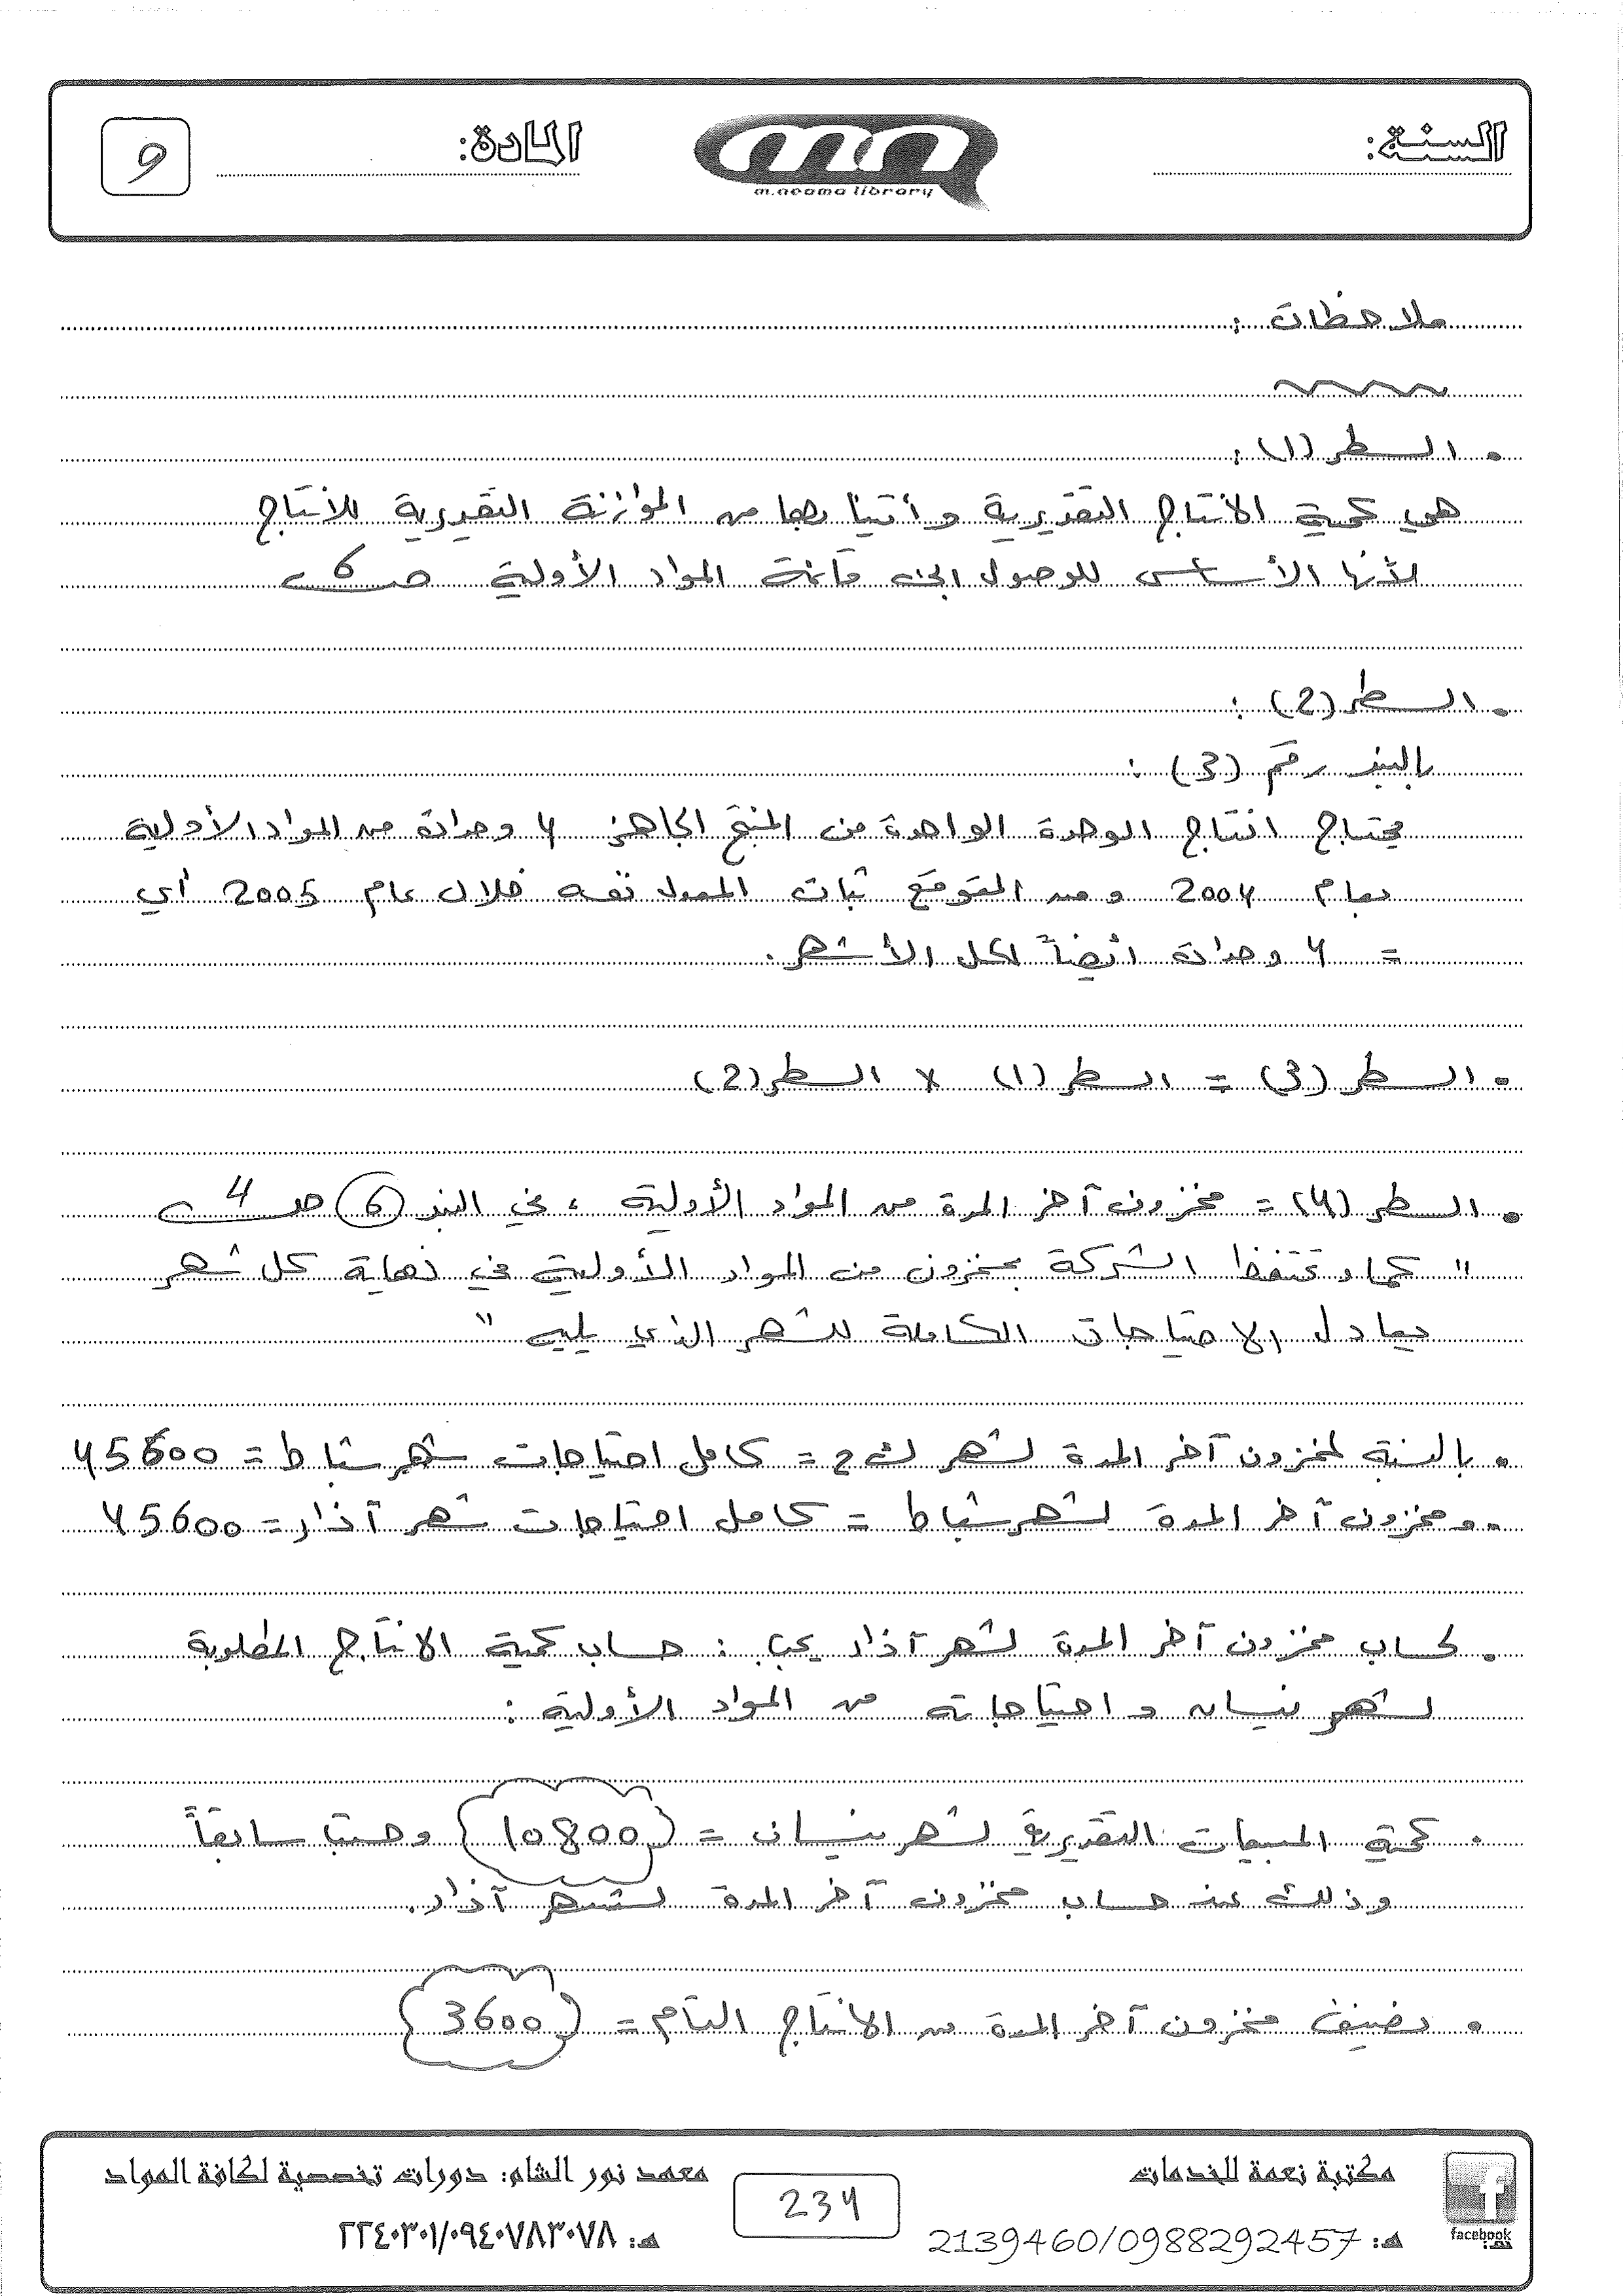 السنة:
m.neama library
المادة:
و
ملاحظات :
• السطر (1) :
هي كمية الانتاج التقديرية وأتينا بها من الموازنة التقديرية للانتاج
لأنها الأساس للوصول إلى قائمة المواد الأولية صـ 6
• السطر (2) :
بالبند رقم (3) :
يحتاج انتاج الوحدة الواحدة من المنتج الجاهز 4 وحدات من المواد الأولية
بعام 2004 ومن المتوقع ثبات المعدل نفسه خلال عام 2005 أي
= 4 وحدات أيضاً لكل الأشهر.
• السطر (3) = السطر (1) × السطر (2)
• السطر (4) = مخزون آخر المدة من المواد الأولية ، في البند (6) صـ 4
" كما وتحتفظ الشركة بمخزون من المواد الأولية في نهاية كل شهر
يعادل الاحتياجات الكاملة للشهر الذي يليه "
• بالنسبة لمخزون آخر المدة لشهر ك2 = كامل احتياجات شهر شباط = 45600
• ومخزون آخر المدة لشهر شباط = كامل احتياجات شهر آذار = 45600
• لحساب مخزون آخر المدة لشهر آذار يجب : حساب كمية الانتاج المطلوبة
لشهر نيسان واحتياجاته من المواد الأولية :
• كمية المبيعات التقديرية لشهر نيسان = (10800) وحسبت سابقاً
وذلك عند حساب مخزون آخر المدة لشهر آذار.
• نضيف مخزون آخر المدة من الانتاج التام = (3600)
facebook
مكتبة نعمة للخدمات
هـ: 2139460/0988292457
234
معهد نور الشام: دورات تخصصية لكافة المواد
هـ: ٢٢٤٠٣٠١/٠٩٤٠٧٨٣٠٧٨